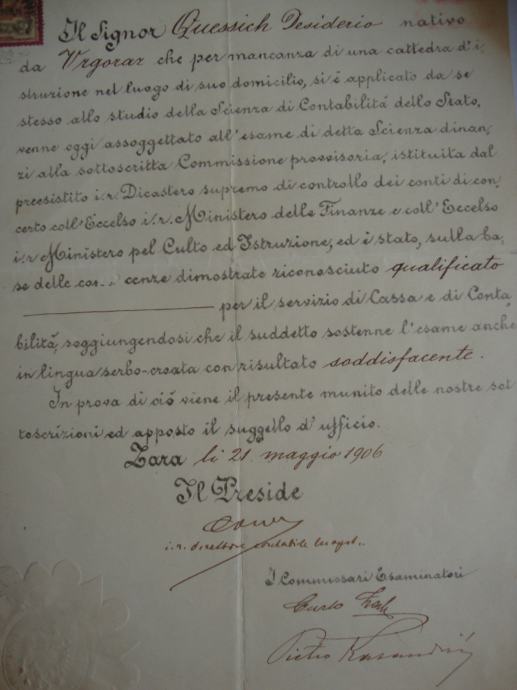 Il Signor Quessich Desiderio nativo
da Vrgoraz che per mancanza di una cattedra d'i,
struzione nel luogo di suo domicilio, si é applicato da se
stesso allo studio della Scienza di Contabilitá dello Stato,
venne oggi assoggettato all'esame di detta Scienza dinan,
zi alla sottoscritta Commissione provvisoria, istituita dal
preesistito i.r. Dicastero supremo di controllo dei conti di con,
certo coll'Eccelso i.r. Ministero delle Finanze e coll'Eccelso
i.r. Ministero pel Culto ed Istruzione, ed é stato, sulla ba,
se delle cenze dimostrate riconosciuto qualificato
per il servizio di Cassa e di Conta,
bilitá, soggiungendosi che il suddetto sostenne l'esame anche
in lingua serbo-croata con risultato soddisfacente.
In prova di ció viene il presente munito delle nostre sot,
toscrizioni ed apposto il suggello d'ufficio.
Zara li 21 maggio 1906
Il Preside
i.r. direttore contabile
I Commissari Esaminatori
Carlo
Pietro